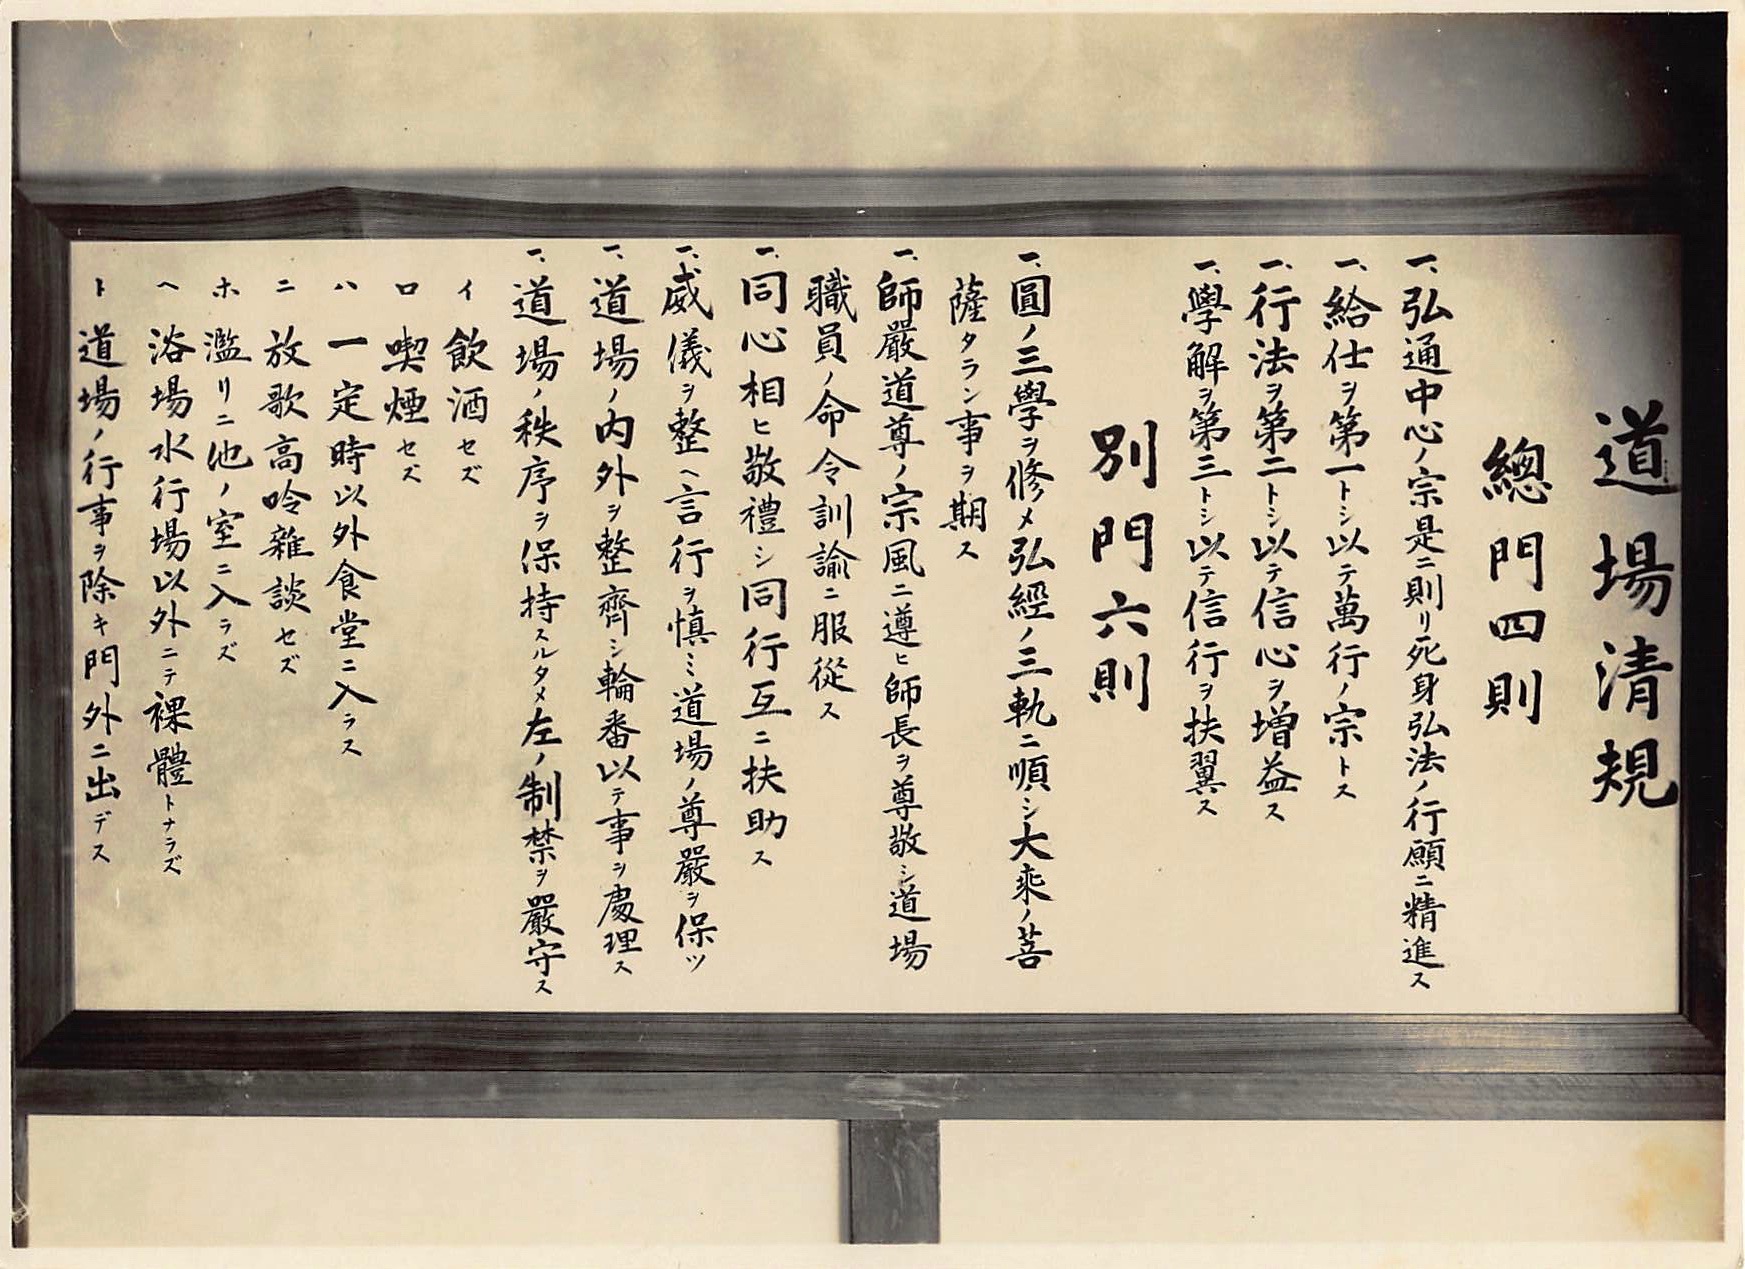 道場清規
總門四則
一、弘通中心ノ宗是ニ則リ死身弘法ノ行願ニ精進ス
一、給仕ヲ第一トシ以テ萬行ノ宗トス
一、行法ヲ第二トシ以テ信心ヲ増益ス
一、學解ヲ第三トシ以テ信行ヲ扶翼ス
別門六則
一、圓ノ三學ヲ修メ弘經ノ三軌ニ順シ大乘ノ菩
薩タラン事ヲ期ス
一、師嚴道尊ノ宗風ニ遵ヒ師長ヲ尊敬シ道場
職員ノ命令訓諭ニ服從ス
一、同心相ヒ敬禮シ同行互ニ扶助ス
一、威儀ヲ整ヘ言行ヲ慎ミ道場ノ尊嚴ヲ保ツ
一、道場ノ内外ヲ整齊シ輪番以テ事ヲ處理ス
一、道場ノ秩序ヲ保持スルタメ左ノ制禁ヲ嚴守ス
イ 飲酒セズ
ロ 喫煙セズ
ハ 一定時以外食堂ニ入ラス
ニ 放歌高吟雜談セズ
ホ 濫リニ他ノ室ニ入ラズ
ヘ 浴場水行場以外ニテ裸體トナラズ
ト 道場ノ行事ヲ除キ門外ニ出デス